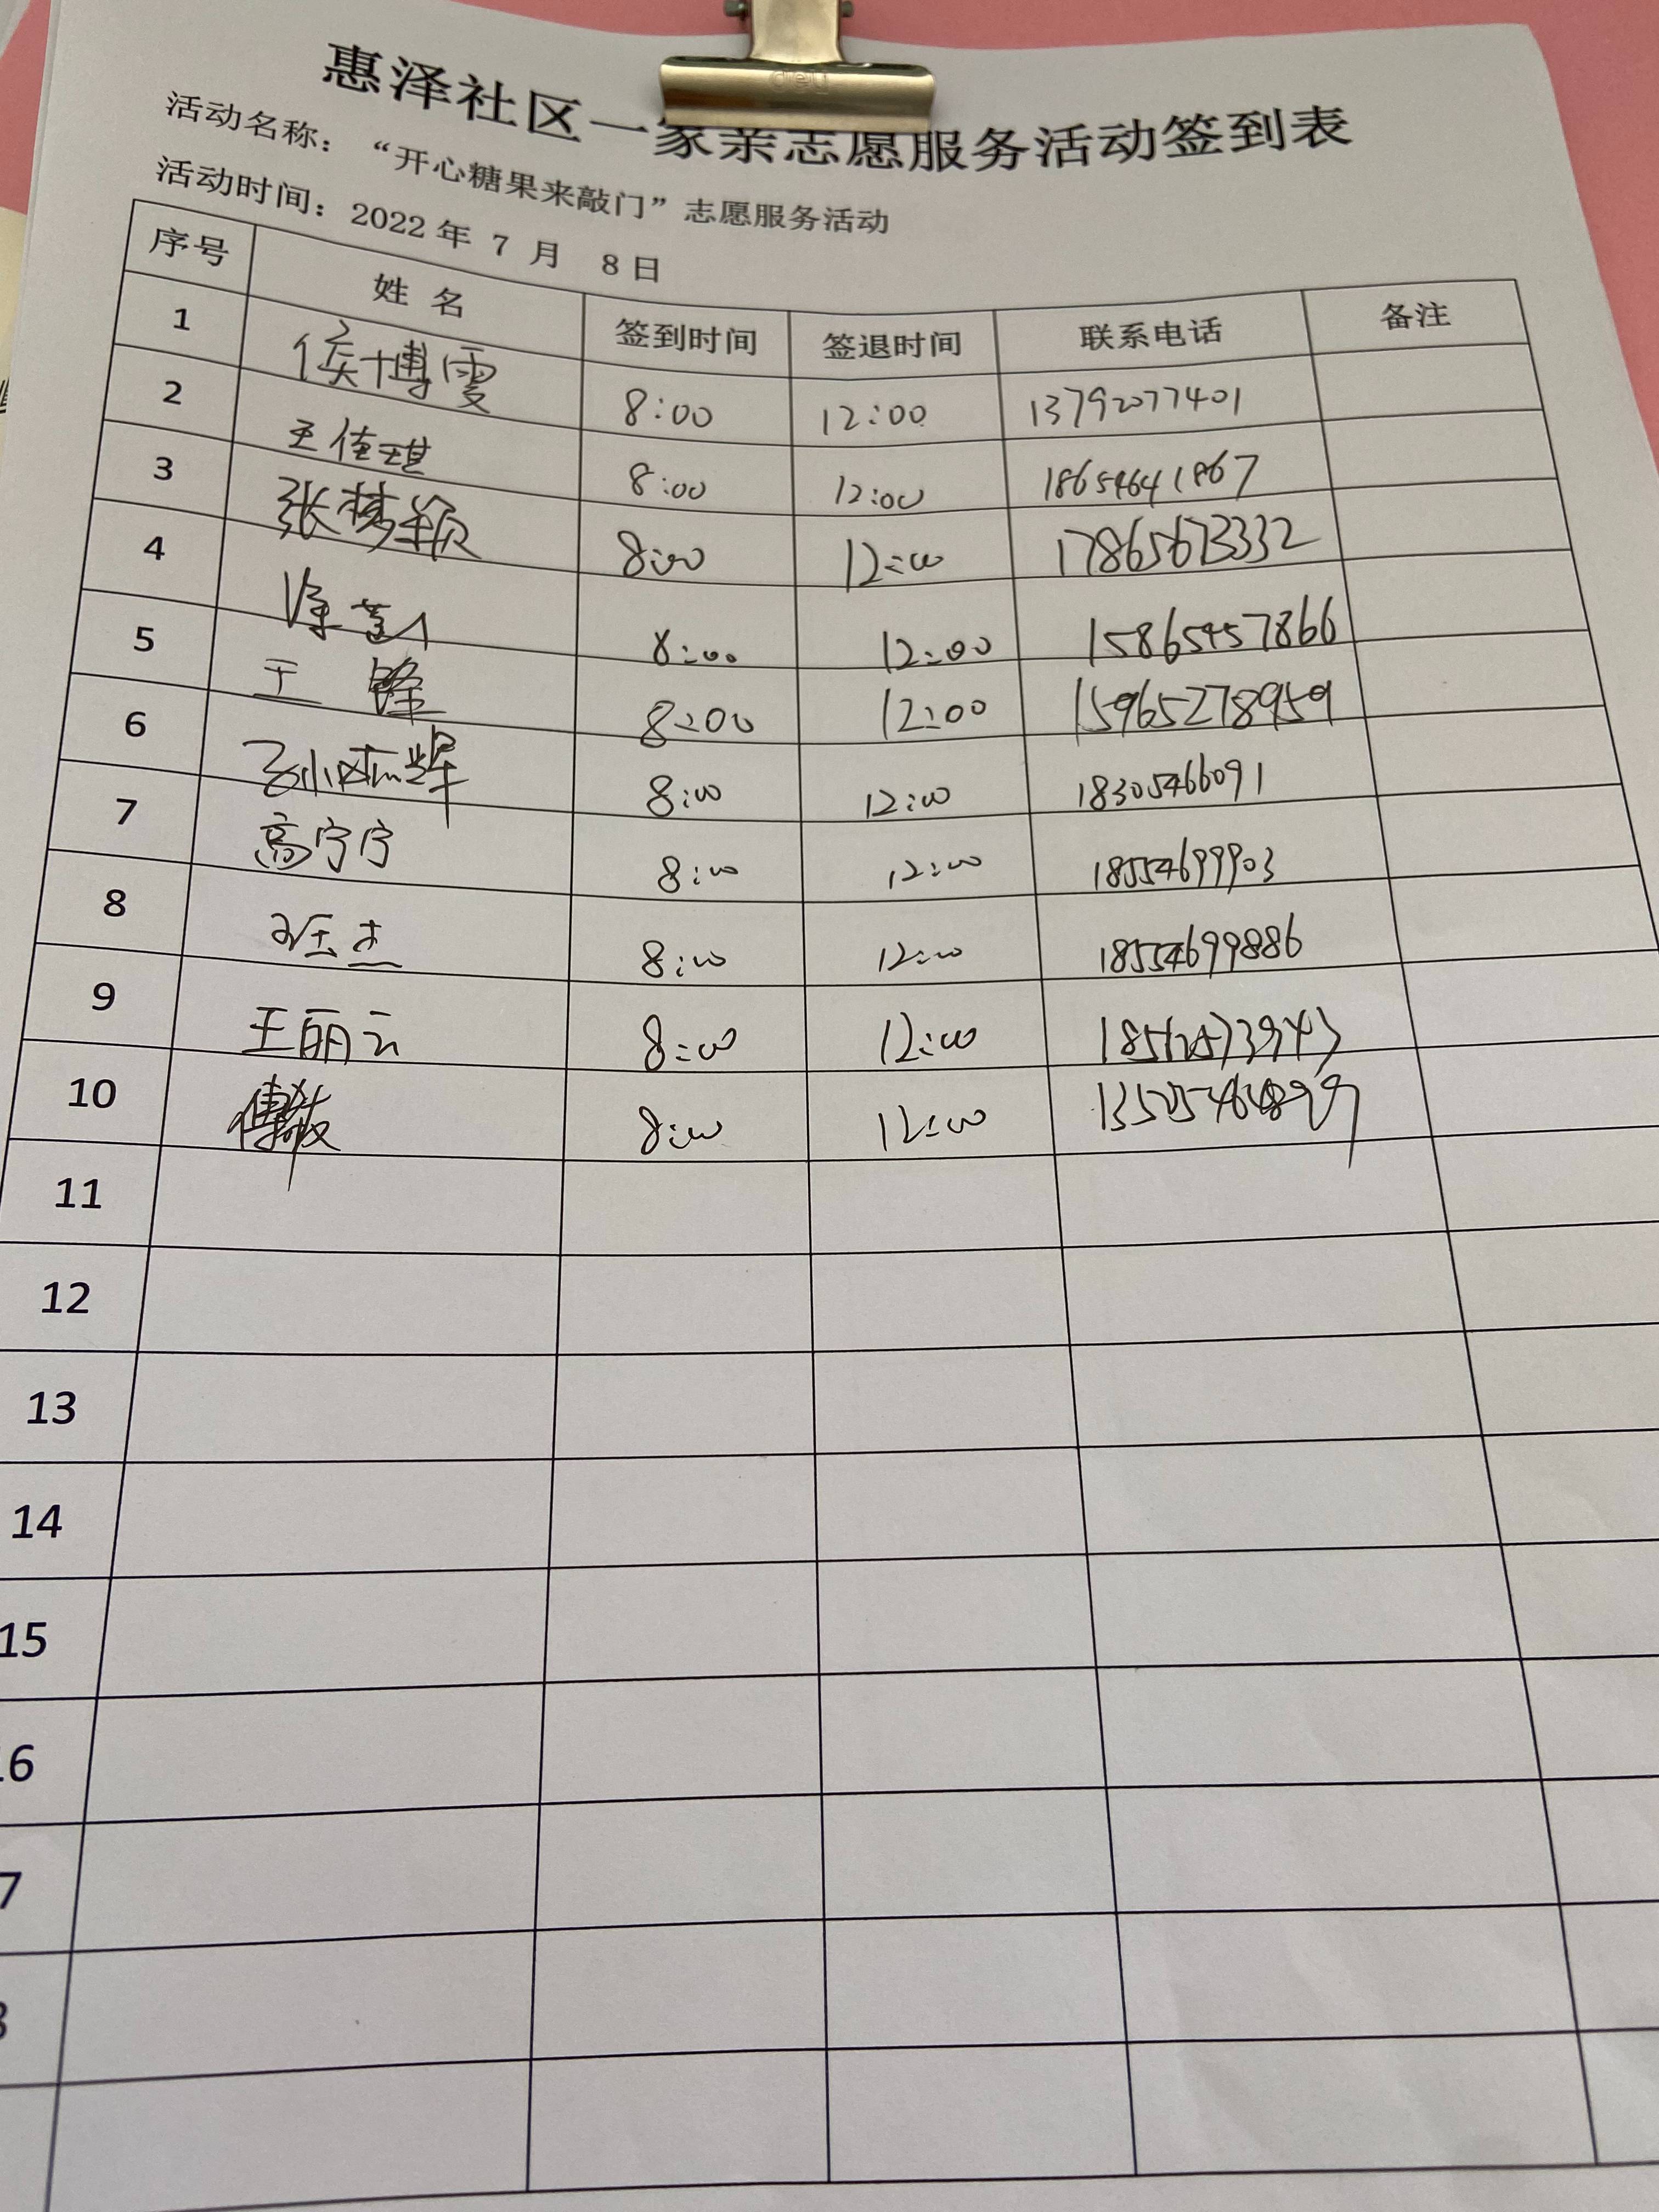 惠泽社区一家亲志愿服务活动签到表
活动名称：“开心糖果来敲门”志愿服务活动
活动时间：2022年 7 月 8日
序号 姓 名 签到时间 签退时间 联系电话 备注
1 侯博雯 8:00 12:00 13792077401
2 王佳琪 8:00 12:00 18654641867
3 张梦颖 8:00 12:00 17865673332
4 8:00 12:00 15865457866
5 王 8:00 12:00 15965278959
6 8:00 12:00 18305466091
7 高宁宁 8:00 12:00 18554699903
8 杰 8:00 12:00 18554699886
9 王丽云 8:00 12:00
10 傅敏 8:00 12:00
11
12
13
14
15
16
7
8